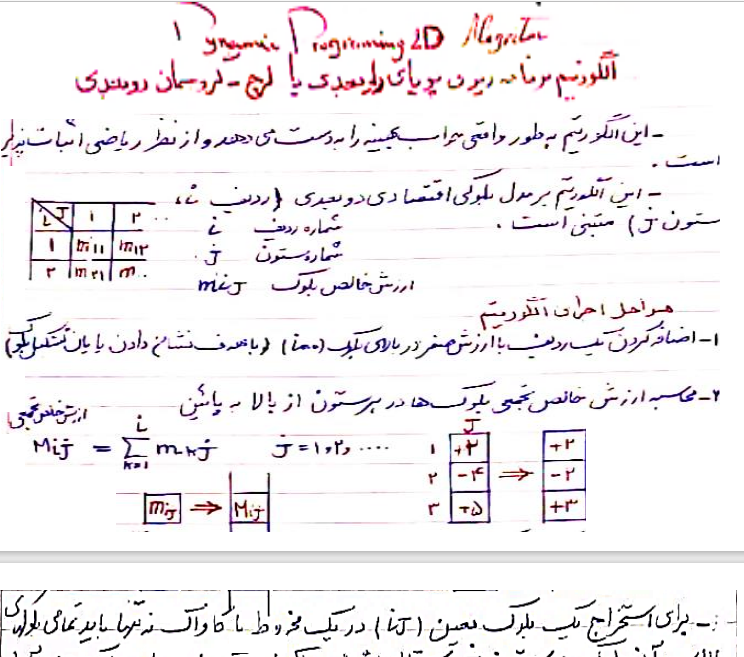 Dynamic Programming 2D Alogritm
الگوریتم برنامه ریزی پویای دو بعدی یا لرچ - گروسمان دوبعدی
- این الگوریتم به طور واقعی جواب بهینه را به دست می دهد و از نظر ریاضی اثبات پذیر
است .
- این الگوریتم بر مدل بلوکی اقتصادی دو بعدی (ردیف i،
ستون j) متبنی است .
i J ۱ ۲ ..
۱ m۱۱ m۱۲
۲ m۲۱ m..
شماره ردیف i
شماره ستون j
ارزش خالص بلوک mij
مراحل اجرای الگوریتم
۱- اضافه کردن یک ردیف با ارزش صفر در بالای بلوک (i=0) (با هدف نشان دادن پایان تشکیل پیت)
۲- محاسبه ارزش خالص تجمعی بلوک ها در هر ستون از بالا به پائین
ارزش خالص تجمعی
Mij = ∑ i k=1 mkj j = ۱ و ۲ و ....
J
۱ +۲ ⇒ +۲
۲ -۴ -۲
۳ +۵ +۳
mij ⇒ Mij
- برای استخراج یک بلوک معین (ij) در یک مخروط باطله کاواک نه تنها باید تمامی بلوکهای